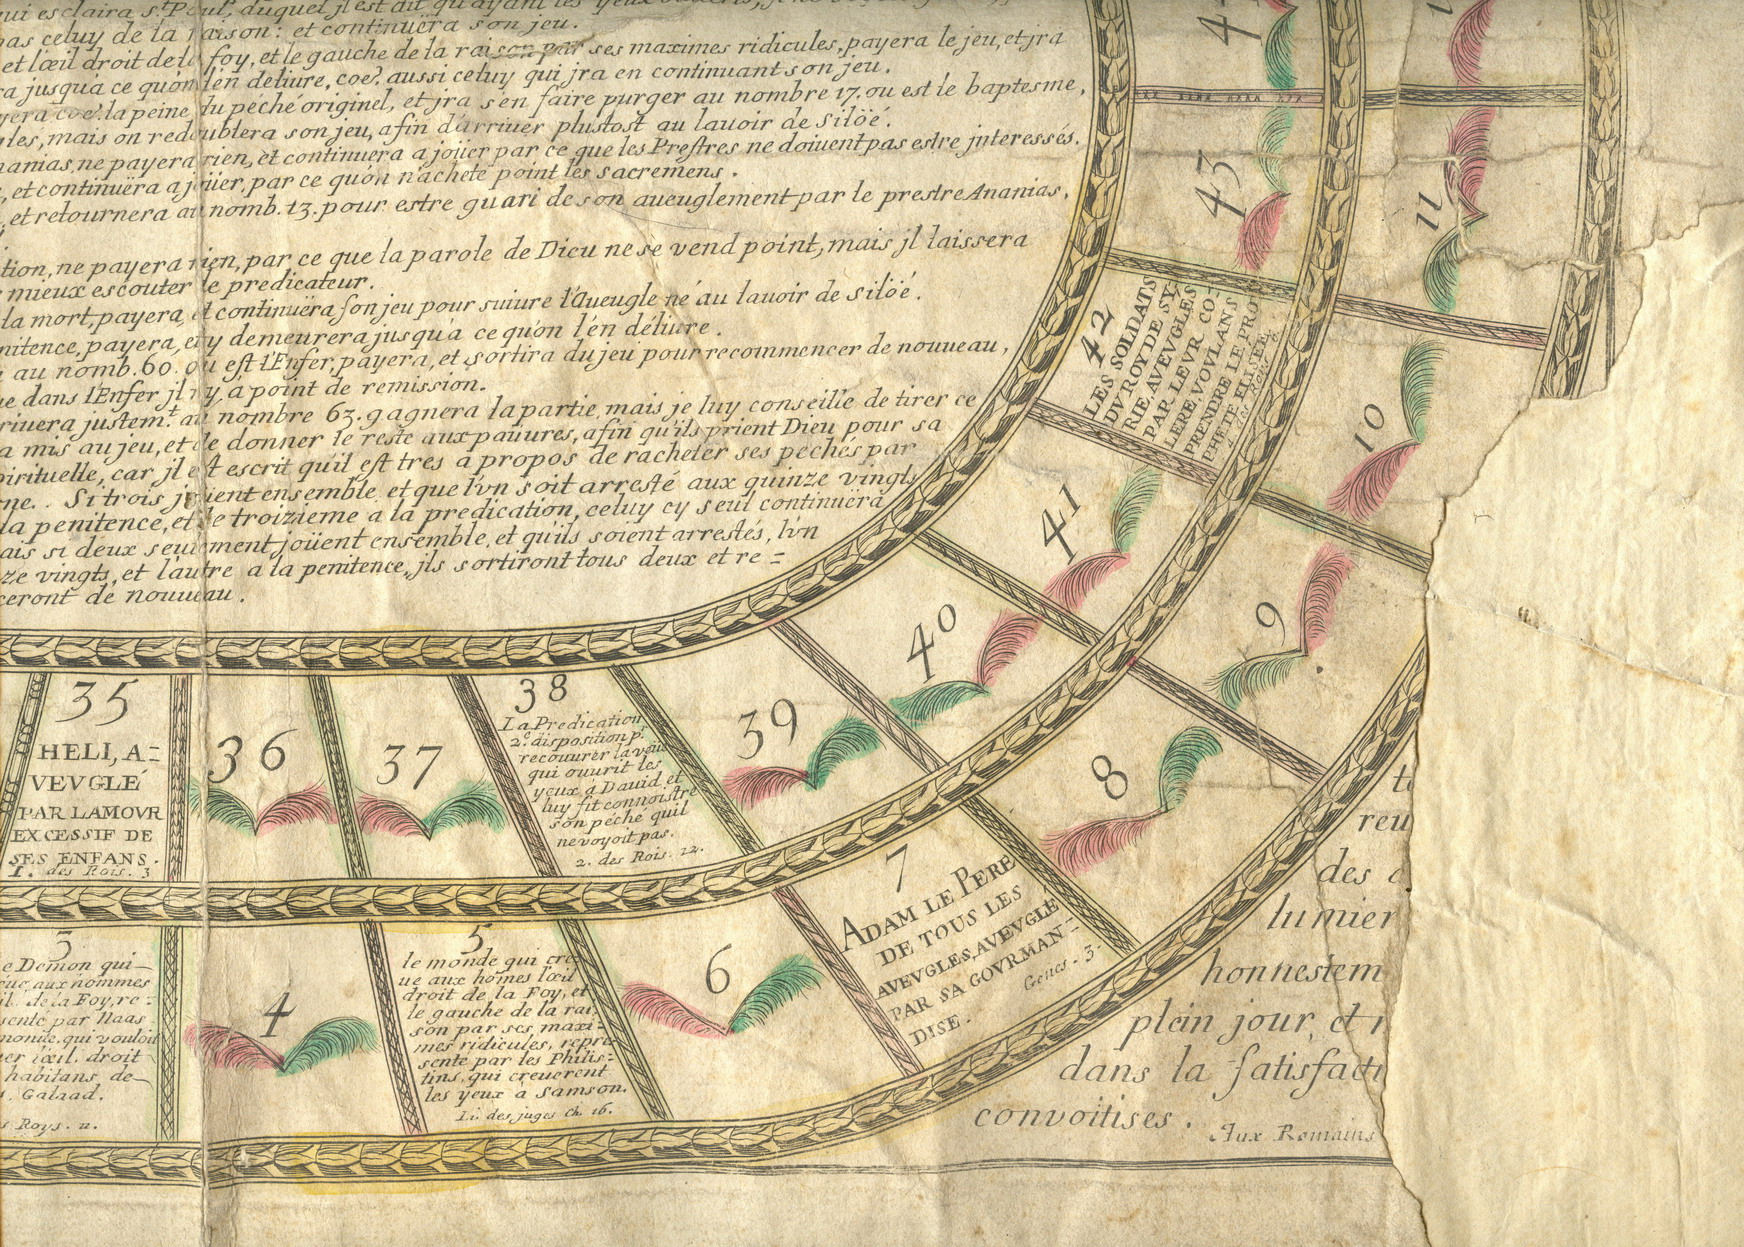 qui esclaira st. Paul, duquel jl est dit qu'ayant les yeux
pas celuy de la raison: et continuëra son jeu.
et lœil droit de la foy, et le gauche de la raison par ses maximes ridicules, payera le jeu, et jra
ra jusqu'a ce quon l'en deliure, coe. aussi celuy qui jra en continuant son jeu.
yera coe. la peine du peché originel, et jra s'en faire purger au nombre 17. ou est le baptesme,
les, mais on redoublera son jeu, afin d'arriuer plustost au lauoir de Silöé.
nanias, ne payera rien, et continuera a joüer par ce que les Prestres ne doiuent pas estre jnteressés.
, et continuëra a joüer, par ce quon n'achete point les sacremens.
, et retournera au nomb. 13. pour estre guari de son aueuglement par le prestre Ananias,
tion, ne payera rien, par ce que la parole de Dieu ne se vend point, mais jl laissera
mieux escouter le predicateur.
la mort, payera, et continuëra son jeu pour suiure l'Aueugle né au lauoir de Silöé.
nitence, payera, et y demeurera jusqu'a ce qu'on l'en déliure.
au nomb. 60. ou est l'Enfer, payera, et sortira du jeu pour recommencer de nouueau,
ue dans l'Enfer jl n'y a point de remission.
riuera justemt. au nombre 63. gagnera la partie, mais je luy conseille de tirer ce
a mis au jeu, et de donner le reste aux pauures, afin qu'ils prient Dieu pour sa
pirituelle, car jl est escrit qu'il est tres a propos de racheter ses pechés par
ne.. Si trois joüent ensemble, et que l'vn soit arresté aux quinze vingts
la penitence, et le troizieme a la predication, celuy cy seul continuëra
ais si deux seulement joüent ensemble, et qu'ils soient arrestés, l'vn
ze vingts, et l'autre a la penitence, jls sortiront tous deux et re=
ceront de nouueau.
43
11
42
LES SOLDATS
DV ROY DE SY-
RIE, AVEVGLES
PAR LEVR CO-
LERE, VOVLANS
PRENDRE LE PRO
PHETE ELISEE.
10
41
9
40
8
39
38
La Predication
2.e disposition pr.
recouurer la veüe
qui ouurit les
yeux a Dauid, et
luy fit connoistre
son péché quil
ne voyoit pas.
2. des Rois. 12.
37
36
35
HELI, A=
VEVGLÉ
PAR L'AMOVR
EXCESSIF DE
SES ENFANS.
1. des Rois. 3
3
e Demon qui
ue aux hommes
il de la Foy, re=
sente par Naas
monite, qui vouloit
er l'œil droit
habitans de
Galaad.
Roys. 11.
4
5
le monde qui cre
ue aux homes l'œil
droit de la Foy, et
le gauche de la rai
son par ses maxi=
mes ridicules, repre
senté par les Philis=
tins, qui creuerent
les yeux a Samson.
Li. des juges Ch. 16.
6
7
ADAM LE PERE
DE TOUS LES
AVEVGLES, AVEVGLÉ
PAR SA GOVRMAN=
DISE.
Genes. 3.
reu
des
lumier
honnestem
plein jour, et
dans la satisfacti
convoitises.
Aux Romains